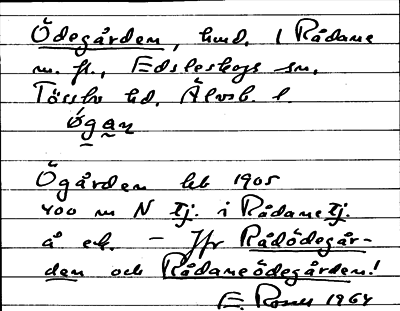 Ödegården, hmd. 1 Rådane
m. fl., Edsleskogs sn.
Tössbo hd. Älvsb. l.
ǿgan
Ögården lht 1905
400 m N tj. i Rådane tj.
å ek. – Jfr Rådödegår-
den och Rådaneödegården!
E. Rosell 1964